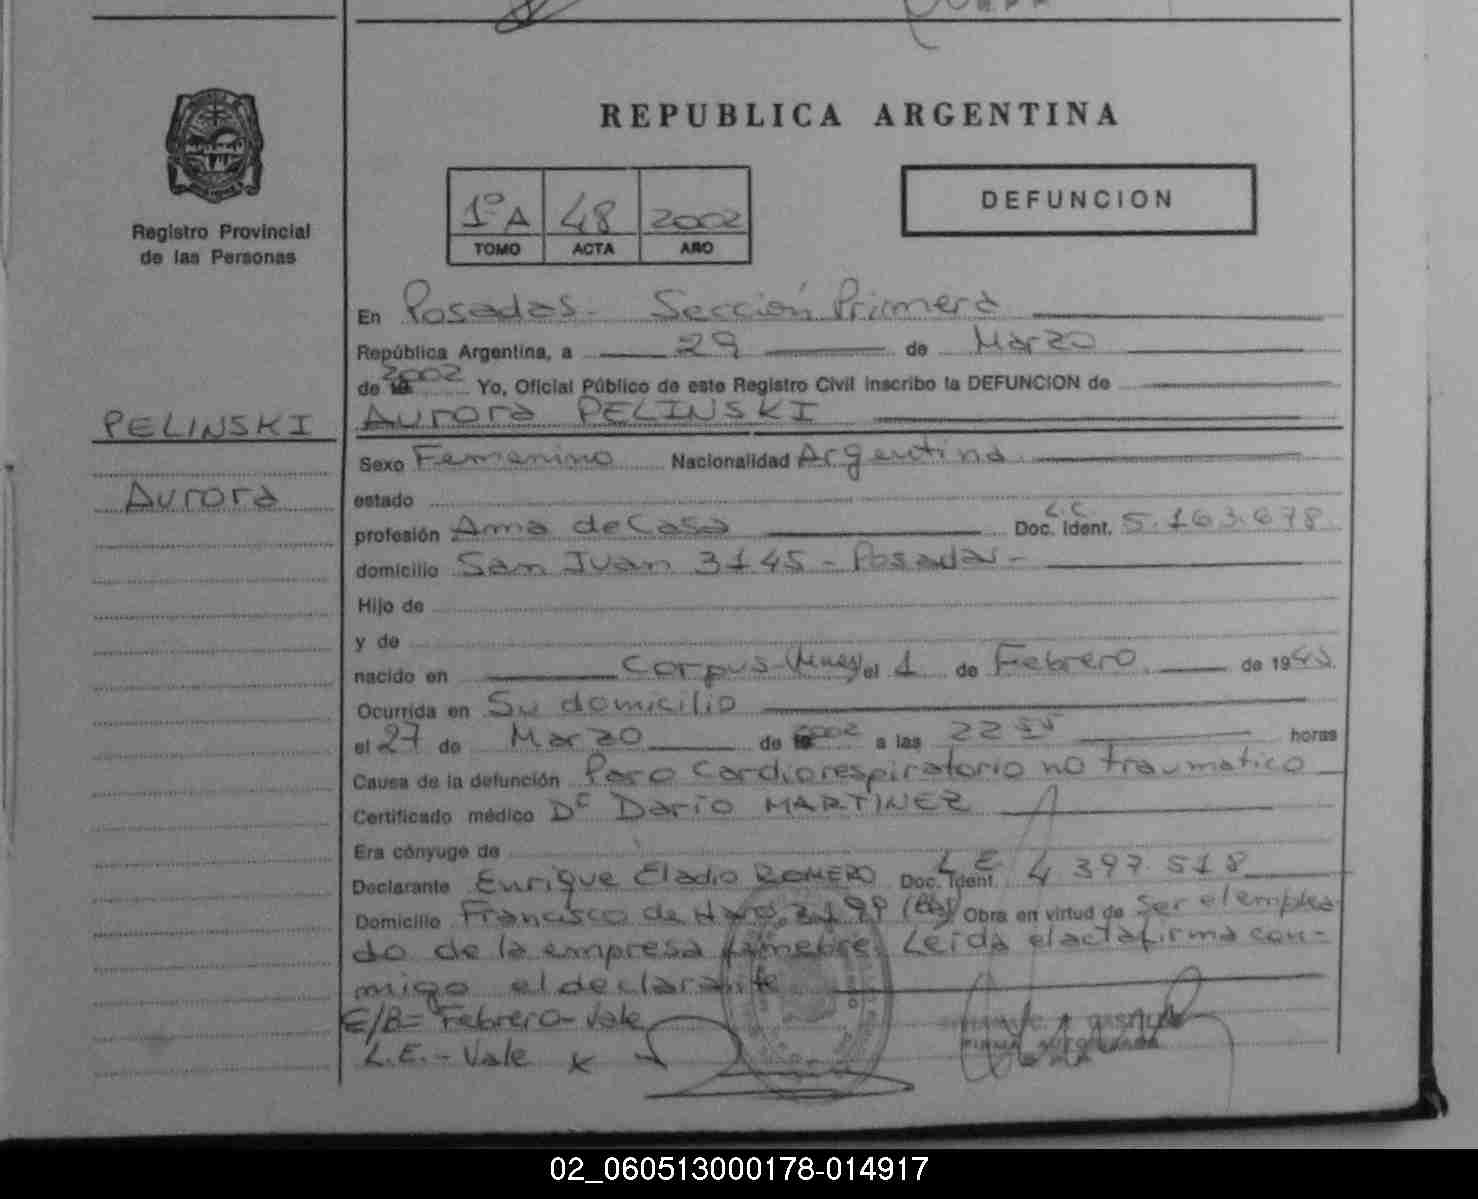 REPUBLICA ARGENTINA
Registro Provincial
de las Personas
1º A 48 2002
TOMO ACTA AÑO
DEFUNCION
En Posadas - Sección Primera
República Argentina, a 29 de Marzo
de 2002 Yo, Oficial Público de este Registro Civil inscribo la DEFUNCION de
Aurora PELINSKI
PELINSKI
Aurora
Sexo Femenino Nacionalidad Argentina
estado
profesión Ama de Casa Doc. Ident. L.C. 5.163.678
domicilio San Juan 3145 - Posadas -
Hijo de
y de
nacido en Corpus (Mnes) el 1 de Febrero de 19
Ocurrida en Su domicilio
el 27 de Marzo de 2002 a las 22 horas
Causa de la defunción Paro Cardiorespiratorio no traumatico
Certificado médico Dr Darío MARTINEZ
Era cónyuge de
Declarante Enrique Eladio ROMERO Doc. Ident. L.E. 4.397.518
Domicilio Francisco de Haro Obra en virtud de Ser el emplea-
do de la empresa fúnebre. Leída el acta firma con-
migo el declarante
E/B= Febrero - Vale
L.E. - Vale x
02_060513000178-014917